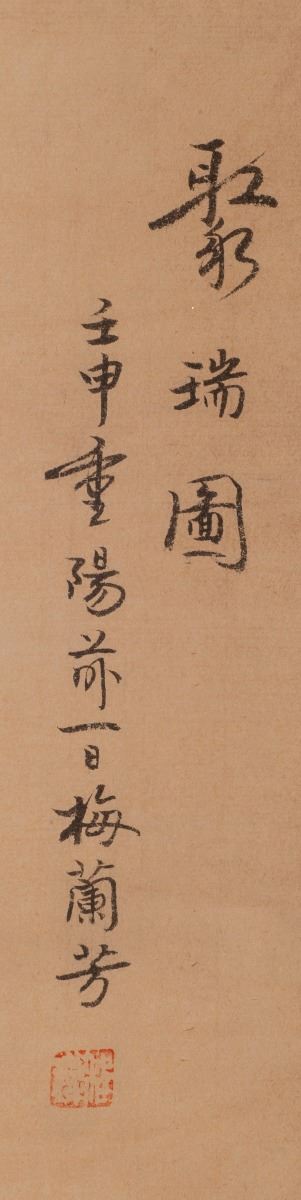 聚瑞圖
壬申重陽前一日梅蘭芳